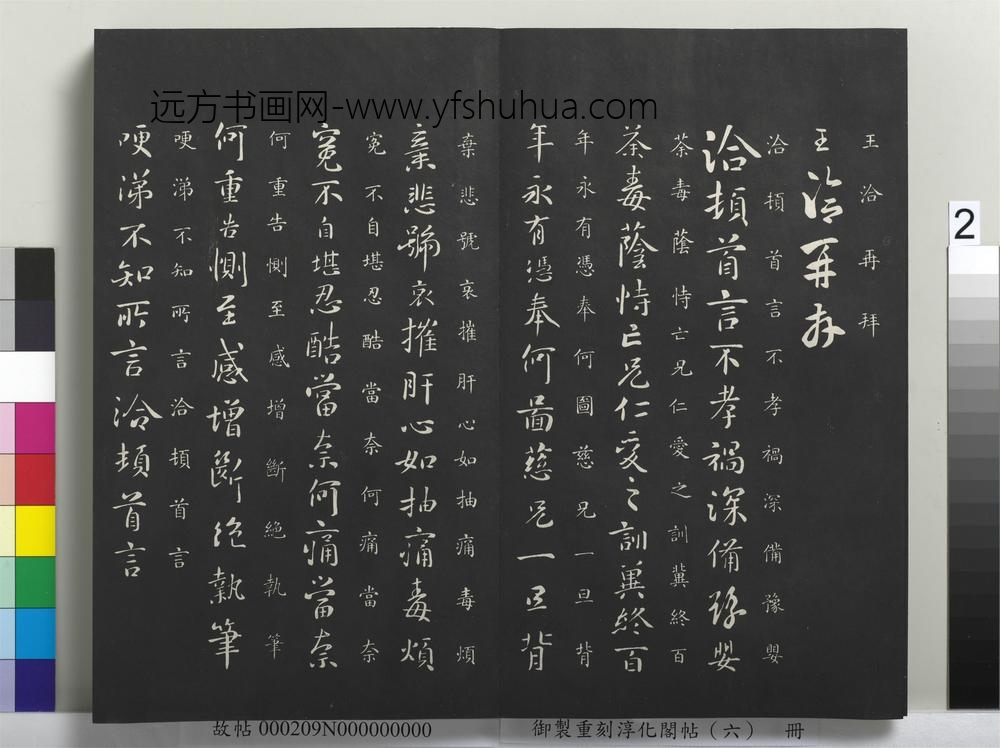 远方书画网-www.yfshuhua.com
王洽再拜
王洽再拜
洽頓首言不孝禍深備豫嬰
洽頓首言不孝禍深備豫嬰
荼毒蔭恃亡兄仁愛之訓冀終百
荼毒蔭恃亡兄仁愛之訓冀終百
年永有憑奉何圖慈兄一旦背
年永有憑奉何圖慈兄一旦背
棄悲號哀摧肝心如抽痛毒煩
棄悲號哀摧肝心如抽痛毒煩
寃不自堪忍酷當奈何痛當奈
寃不自堪忍酷當奈何痛當奈
何重告惻至感增斷絕執筆
何重告惻至感增斷絕執筆
哽涕不知所言洽頓首言
哽涕不知所言洽頓首言
2
故帖 000209N000000000
御製重刻淳化閣帖（六） 冊